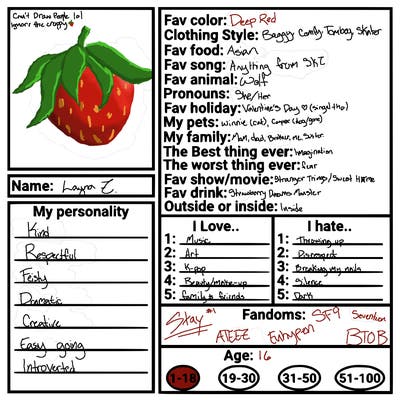 Can't Draw People lol
ignore the crappy
Name: Layna Z.
My personality
Kind
Respectful
Feisty
Dramatic
Creative
Easy going
Introverted
Fav color: Deep Red
Clothing Style: Baggy Comfy Tomboy Skater
Fav food: Asian
Fav song: Anything from SKZ
Fav animal: Wolf
Pronouns: She/Her
Fav holiday: Valentine's Day ♡ (single tho)
My pets: Winnie (cat), Cooper (dog/gone)
My family: Mom, dad, Brother, me, Sister
The Best thing ever: Imagination
The worst thing ever: fear
Fav show/movie: Stranger Things/Sweet Home
Fav drink: Strawberry Dreams Monster
Outside or inside: Inside
I Love..
1: Music
2: Art
3: K-pop
4: Beauty/Make-up
5: family & friends
I hate..
1: Throwing up
2: Disrespect
3: Breaking my nails
4: Silence
5: Dark
Fandoms: SF9 Seventeen
Stay #1 ATEEZ Enhypen BTOB
Age: 16
1-18 19-30 31-50 51-100